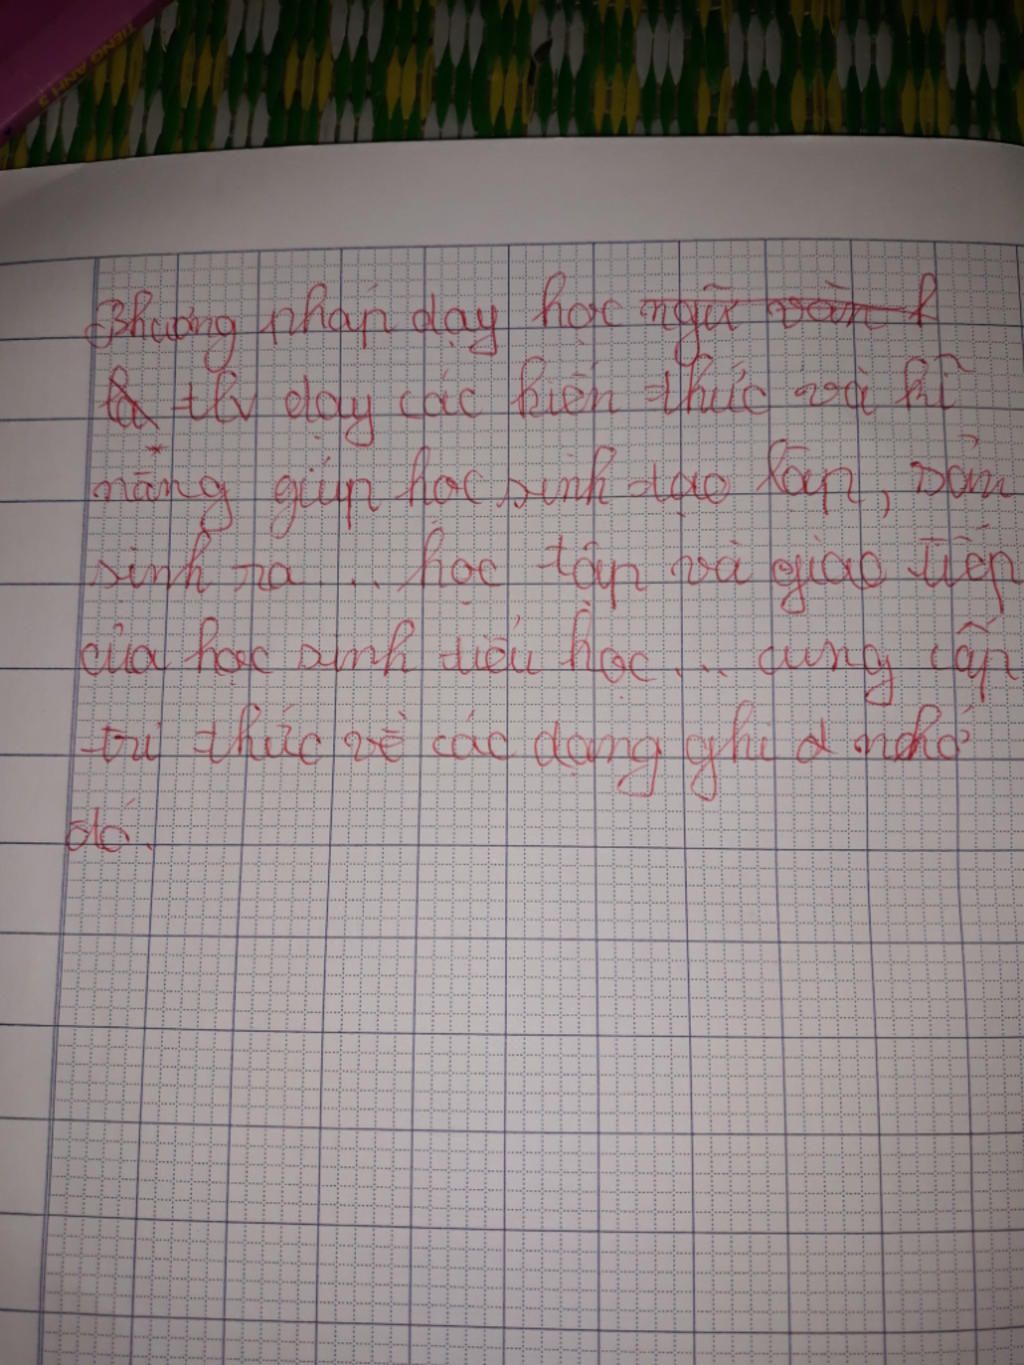 TIẾNG ANH 3
Phương pháp dạy học ngữ văn l
là tlv dạy các kiến thức và kĩ
năng giúp học sinh tạo lập, sản
sinh ra ... học tập và giao tiếp
của học sinh tiểu học ... cung cấp
tri thức về các dạng ghi nhớ
đó.